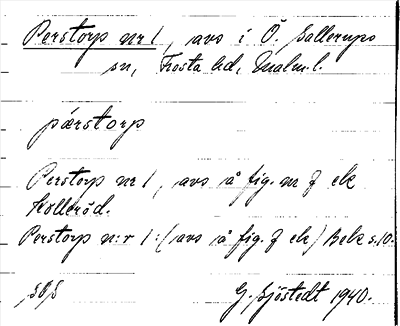 Perstorp nr 1, avs i Ö. Sallerups
sn, Frosta hd, Malm. l.
pærstorp
Perstorp nr 1, avs å fig. m f ek
Kolleröd.
Perstorp n:r 1: (avs å fig. f ek) Bebs s. 10.
G. Sjöstedt 1940.